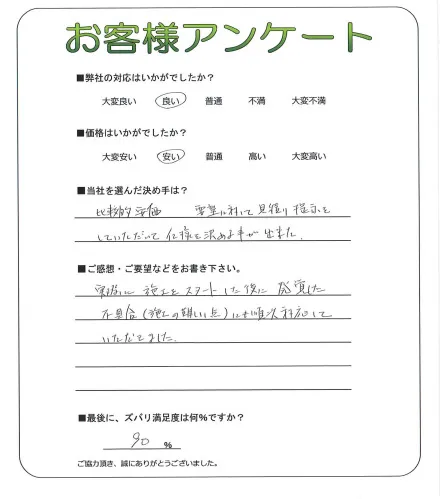 お客様アンケート
■弊社の対応はいかがでしたか?
大変良い 良い 普通 不満 大変不満
■価格はいかがでしたか?
大変安い 安い 普通 高い 大変高い
■当社を選んだ決め手は?
比較的安価 要望に対して見積り提示を
していただいて仕様を決める事が出来た.
■ご感想・ご要望などをお書き下さい。
実際に施工をスタートした後に発覚した
不具合(施工の難しい点)にも順次対応して
いただてました.
■最後に、ズバリ満足度は何%ですか?
90 %
ご協力頂き、誠にありがとうございました。